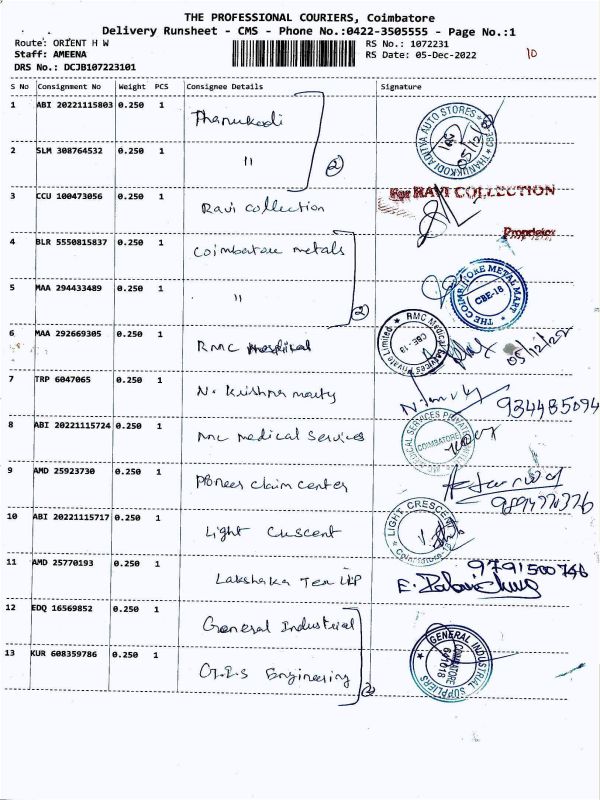 THE PROFESSIONAL COURIERS, Coimbatore
Delivery Runsheet - CMS - Phone No.:0422-3505555 - Page No.:1
Route: ORIENT H W RS No.: 1072231
Staff: AMEENA RS Date: 05-Dec-2022 10
DRS No.: DCJB107223101
S No Consignment No Weight PCS Consignee Details Signature
1 ABI 20221115803 0.250 1 Thanukodi
THANUKKODI ADITYA AUTO STORES CBE
05/12/
2 SLM 308764532 0.250 1 " 2
3 CCU 100473056 0.250 1 Ravi collection
For RAVI COLLECTION
Proprietor
4 BLR 5550815837 0.250 1 Coimbatore metals
5 MAA 294433489 0.250 1 " 2
THE COIMBATORE METAL MART
CBE-18
6 MAA 292669305 0.250 1 RMC Hospital
RMC Medical Services Private Limited
CBE-
05/12/22
7 TRP 6047065 0.250 1 N. Krishna
8 ABI 20221115724 0.250 1 medical Services
MEDICAL SERVICES PRIVATE
COIMBATORE
9 AMD 25923730 0.250 1 Pioneer claim center
10 ABI 20221115717 0.250 1 Light Crescent
LIGHT CRESCENT
Coimbatore-18
11 AMD 25770193 0.250 1 Lakshaka Tex LLP
9791500746
12 EDQ 16569852 0.250 1 General Industrial
13 KUR 608359786 0.250 1 Engineering 2
GENERAL INDUSTRIAL SUPPLIERS
COIMBATORE
641018